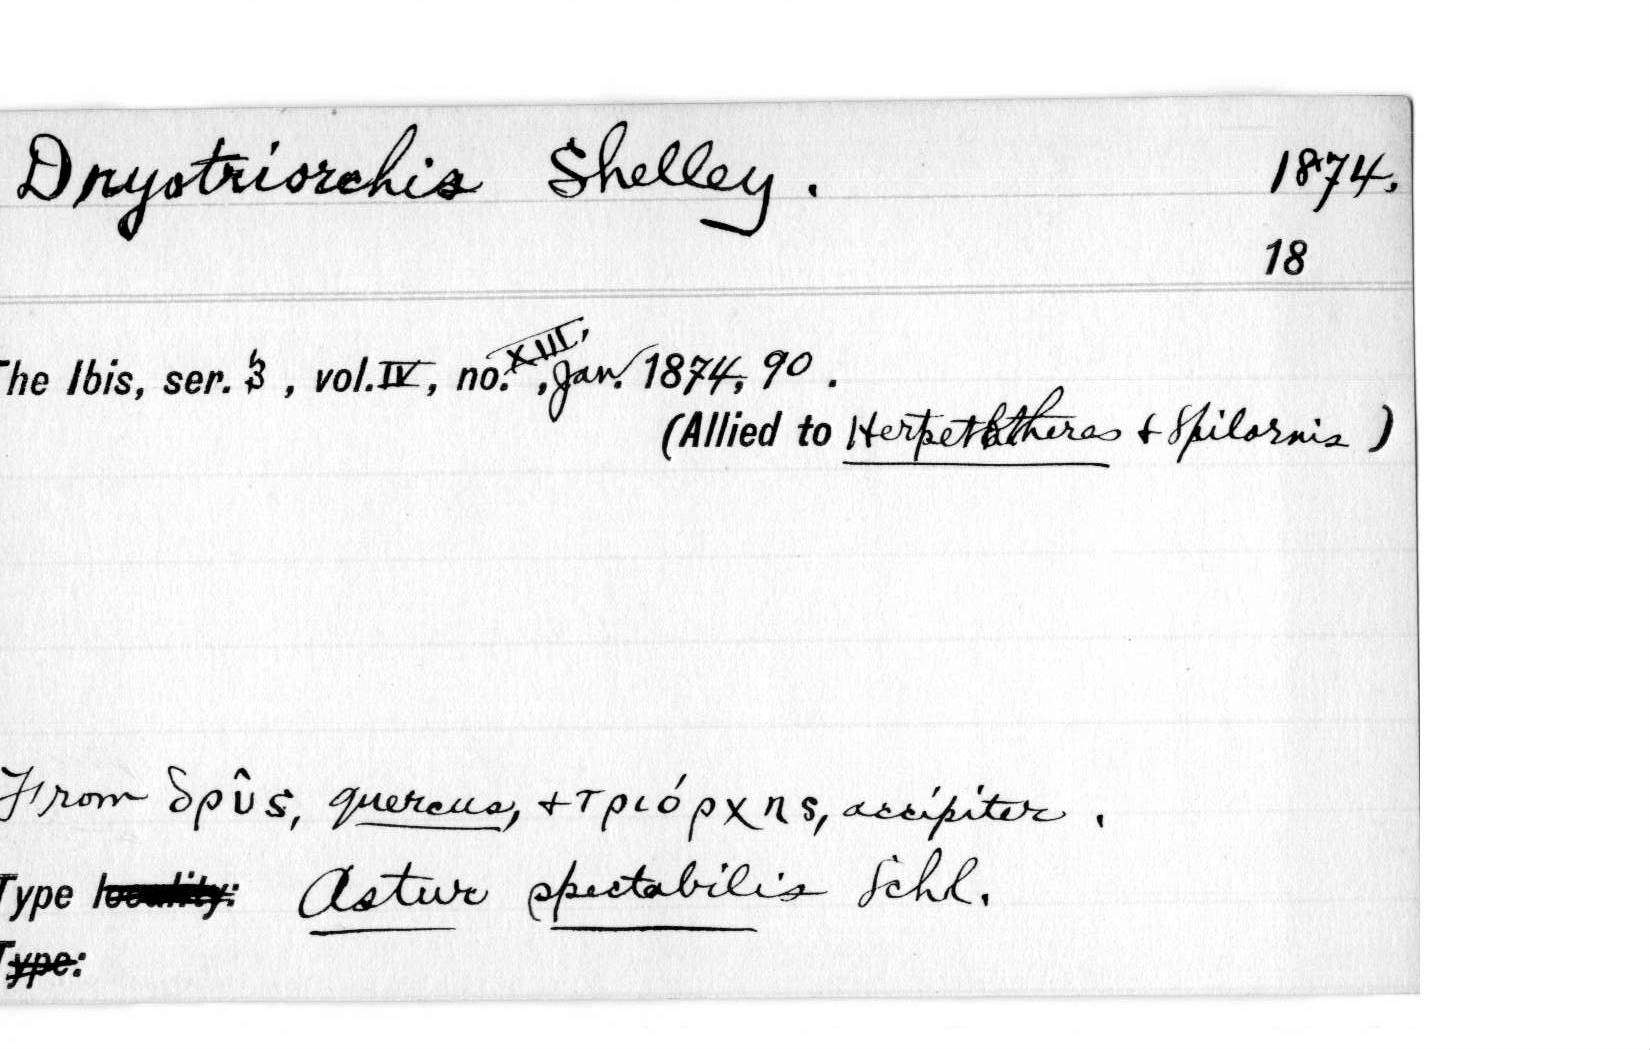 Dryotriorchis Shelley. 1874.
18
The Ibis, ser. 3, vol. IV, no. XIII, Jan. 1874, 90.
(Allied to Herpetotheres + Spilornis)
From δρῦς, quercus, + τριόρχης, accipiter.
Type locality: Astur spectabilis Schl.
Type: